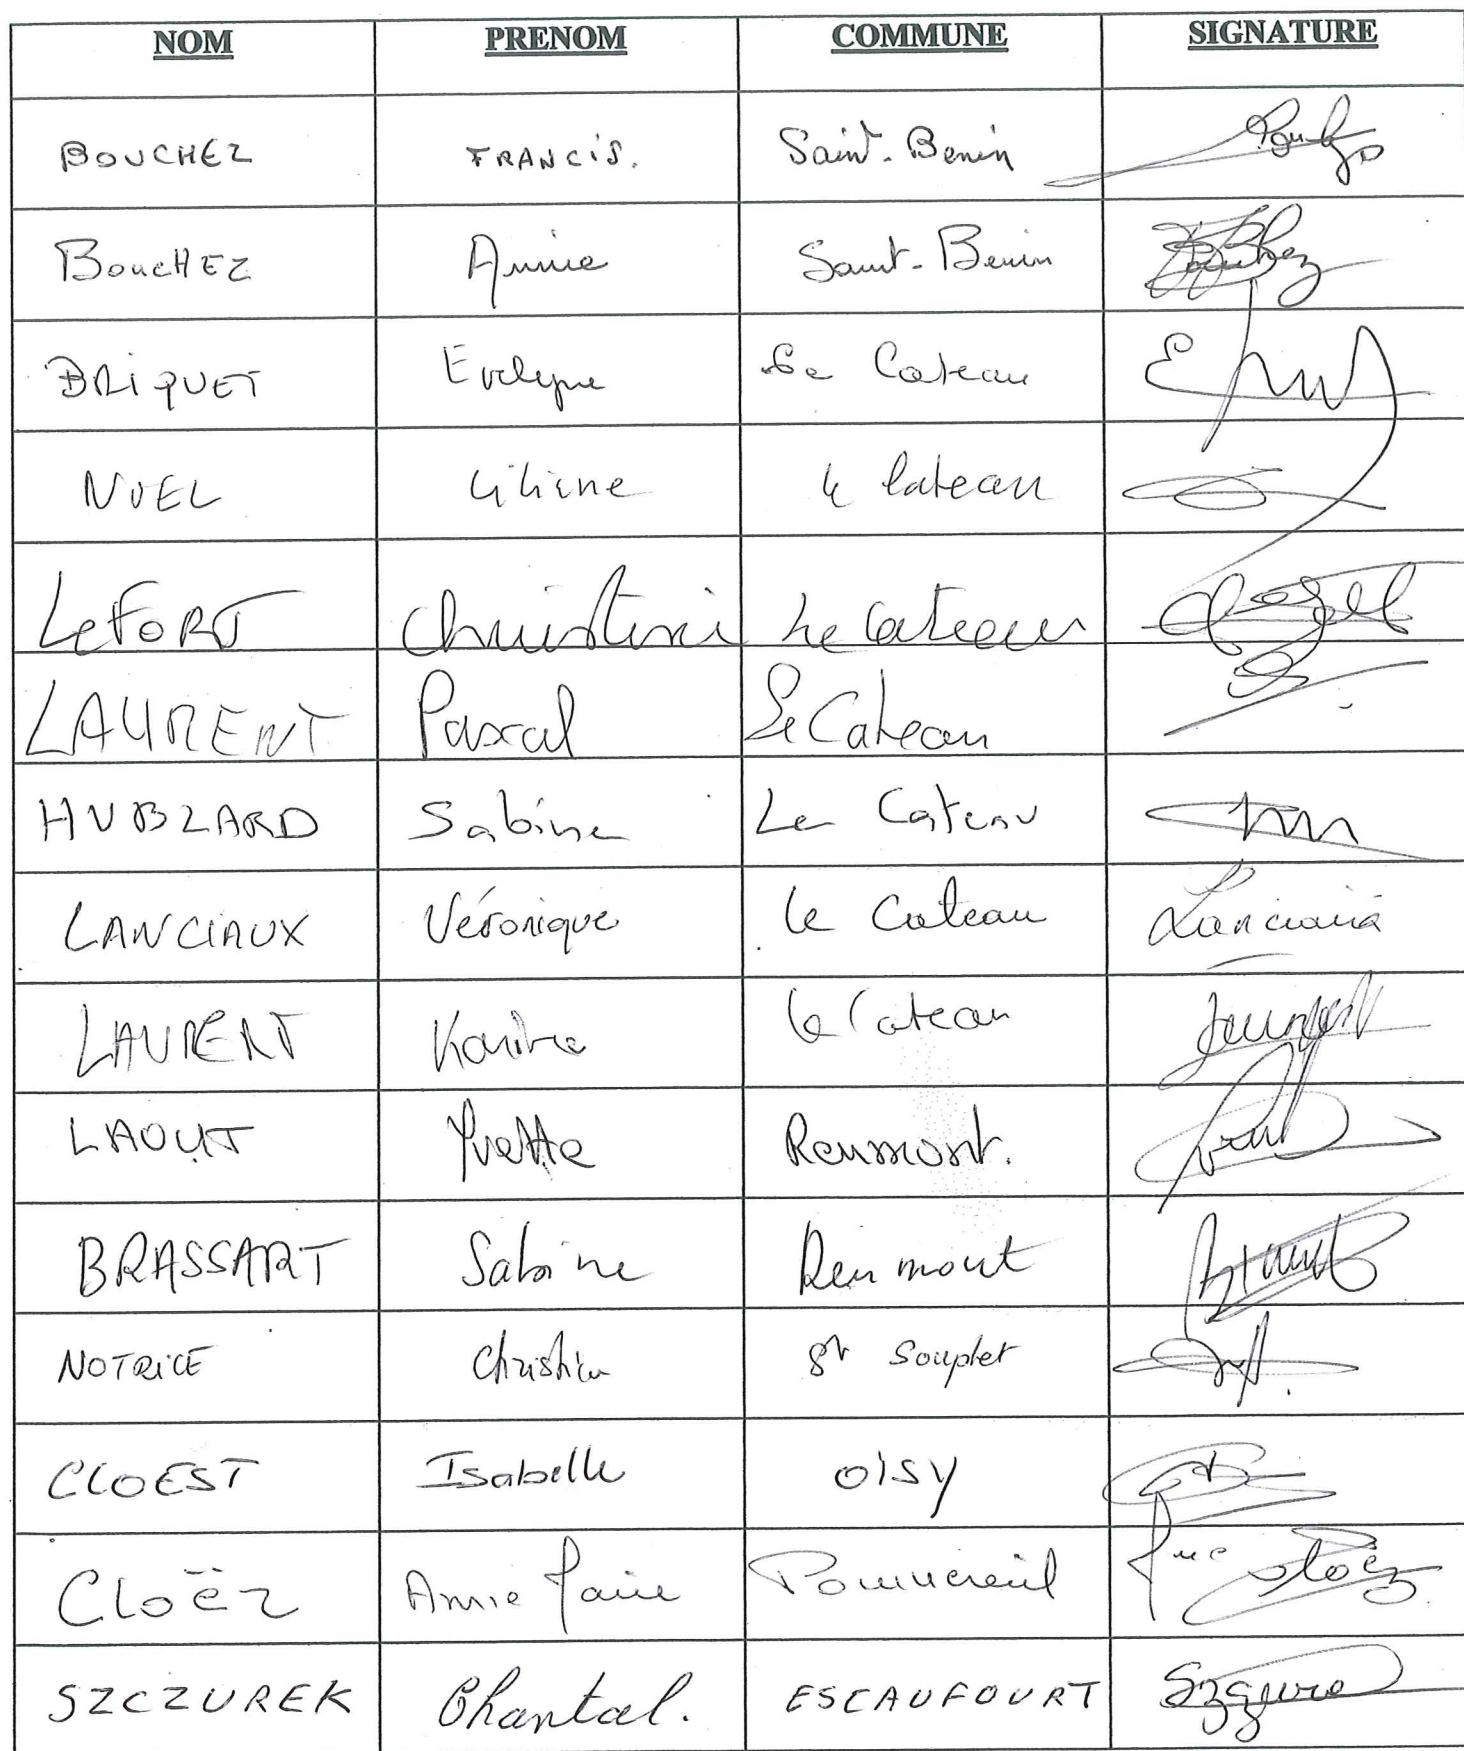 NOM PRENOM COMMUNE SIGNATURE
BOUCHEZ FRANCIS. Saint-Benin
BoucHEZ Annie Saint-Benin
BRIQUET Evelyne Le Cateau
NOEL Liliane Le Cateau
LeFORT Christine Le Cateau
LAURENT Pascal Le Cateau
HUBLARD Sabine Le Cateau
LANCIAUX Véronique Le Cateau Lanciaux
LAURENT Karine Le Cateau
LAOUT Yvette Reumont.
BRASSART Sabine Reumont
NOTRICE Christian St Souplet
CLOEST Isabelle OISY
Cloëz Annie Marie Pommereuil Cloëz
SZCZUREK Chantal. ESCAUFOURT